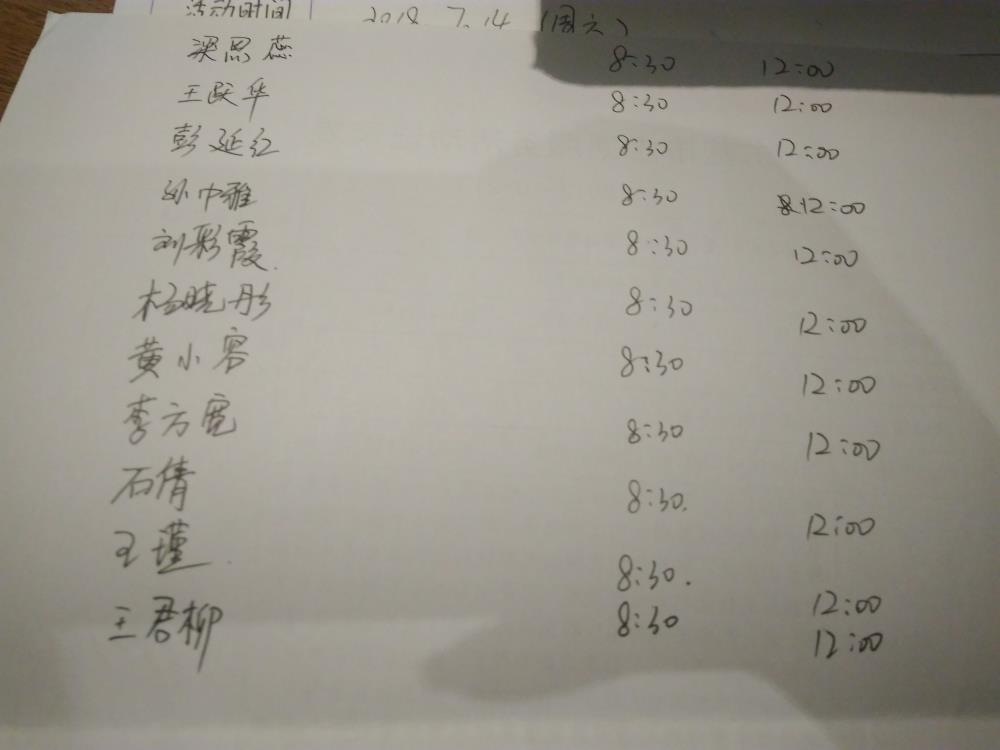 活动时间 2018 7.14 (周六)
梁思蕊 8:30 12:00
王跃华 8:30 12:00
彭延红 8:30 12:00
孙中雅 8:30 12:00
刘彩霞 8:30 12:00
杨晓彤 8:30 12:00
黄小容 8:30 12:00
李方宽 8:30 12:00
石倩 8:30. 12:00
王瑾 8:30. 12:00
王君柳 8:30 12:00